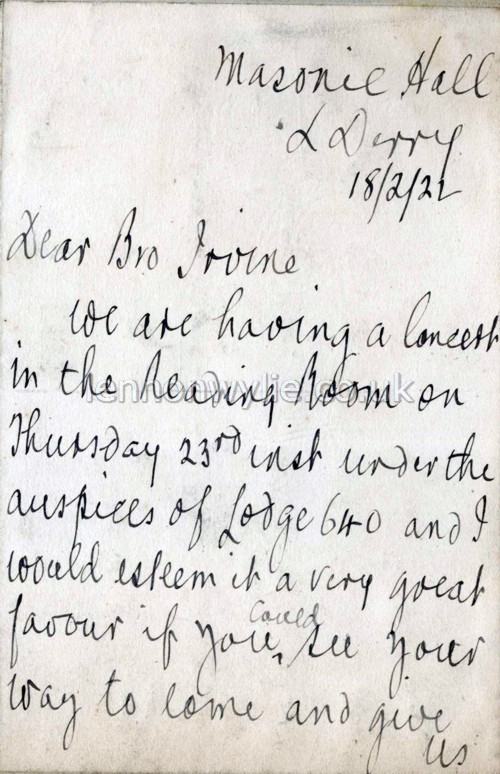 Masonic Hall
L Derry
18/2/22
Dear Bro Irvine
We are having a Concert
in the Reading Room on
Thursday 23rd inst under the
auspices of Lodge 640 and I
would esteem it a very great
favour if you could see your
way to come and give
us
lennonwylie.co.uk